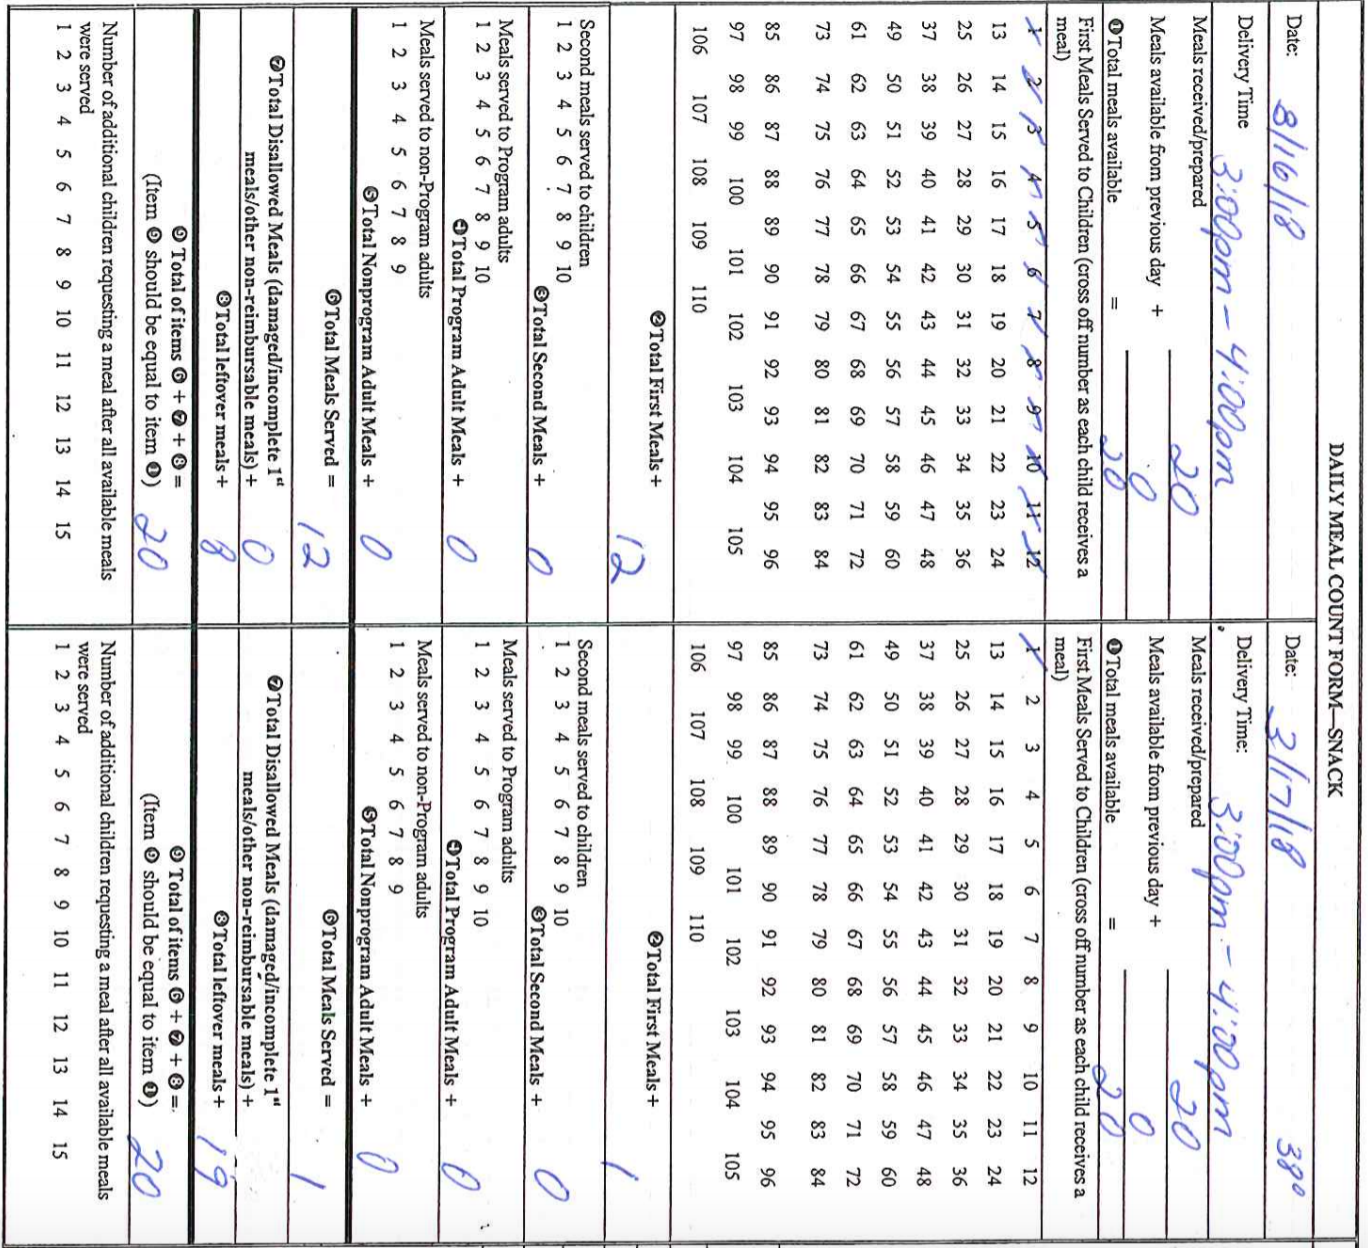 DAILY MEAL COUNT FORM—SNACK
Date: 8/16/18
Delivery Time 3:00pm - 4:00pm
Meals received/prepared 20
Meals available from previous day + 0
❶Total meals available = 20
First Meals Served to Children (cross off number as each child receives a
meal)
1 2 3 4 5 6 7 8 9 10 11 12
13 14 15 16 17 18 19 20 21 22 23 24
25 26 27 28 29 30 31 32 33 34 35 36
37 38 39 40 41 42 43 44 45 46 47 48
49 50 51 52 53 54 55 56 57 58 59 60
61 62 63 64 65 66 67 68 69 70 71 72
73 74 75 76 77 78 79 80 81 82 83 84
85 86 87 88 89 90 91 92 93 94 95 96
97 98 99 100 101 102 103 104 105
106 107 108 109 110
❷Total First Meals + 12
Second meals served to children
1 2 3 4 5 6 7 8 9 10
❸Total Second Meals + 0
Meals served to Program adults
1 2 3 4 5 6 7 8 9 10
❹Total Program Adult Meals + 0
Meals served to non-Program adults
1 2 3 4 5 6 7 8 9
❺Total Nonprogram Adult Meals + 0
❻Total Meals Served = 12
❼Total Disallowed Meals (damaged/incomplete 1st
meals/other non-reimbursable meals) + 0
❽Total leftover meals + 8
❾ Total of items ❻ + ❼ + ❽ =
(Item ❾ should be equal to item ❶) 20
Number of additional children requesting a meal after all available meals
were served
1 2 3 4 5 6 7 8 9 10 11 12 13 14 15
Date: 3/17/18 38°
Delivery Time: 3:00pm - 4:00pm
Meals received/prepared 20
Meals available from previous day + 0
❶Total meals available = 20
First Meals Served to Children (cross off number as each child receives a
meal)
1 2 3 4 5 6 7 8 9 10 11 12
13 14 15 16 17 18 19 20 21 22 23 24
25 26 27 28 29 30 31 32 33 34 35 36
37 38 39 40 41 42 43 44 45 46 47 48
49 50 51 52 53 54 55 56 57 58 59 60
61 62 63 64 65 66 67 68 69 70 71 72
73 74 75 76 77 78 79 80 81 82 83 84
85 86 87 88 89 90 91 92 93 94 95 96
97 98 99 100 101 102 103 104 105
106 107 108 109 110
❷Total First Meals + 1
Second meals served to children
1 2 3 4 5 6 7 8 9 10
❸Total Second Meals + 0
Meals served to Program adults
1 2 3 4 5 6 7 8 9 10
❹Total Program Adult Meals + 0
Meals served to non-Program adults
1 2 3 4 5 6 7 8 9
❺Total Nonprogram Adult Meals + 0
❻Total Meals Served = 1
❼Total Disallowed Meals (damaged/incomplete 1st
meals/other non-reimbursable meals) +
❽Total leftover meals + 19
❾ Total of items ❻ + ❼ + ❽ =
(Item ❾ should be equal to item ❶) 20
Number of additional children requesting a meal after all available meals
were served
1 2 3 4 5 6 7 8 9 10 11 12 13 14 15